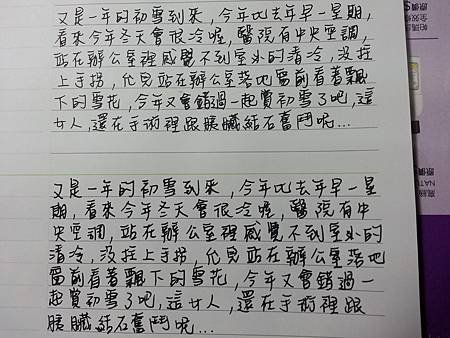 又是一年的初雪到來,今年比去年早一星期,
看來今年冬天會很冷喔,醫院有中央空調,
站在辦公室裡感覺不到室外的清冷,沒拉
上手,允兒站在辦公室落地窗前看著飄
下的雪花,今年又會錯過一起賞初雪了吧,這
女人,還在手術裡跟胰臟結石奮鬥呢...
又是一年的初雪到來,今年比去年早一星
期,看來今年冬天會很冷喔,醫院有中
央空調,站在辦公室裡感覺不到室外的
清冷,沒拉上手,允兒在辦公室落地
窗前看著飄下的雪花,今年又會錯過一
起賞初雪了吧,這女人,還在手術裡跟
胰臟結石奮鬥呢...
帕瑪
全效修
原價
NATU
原價